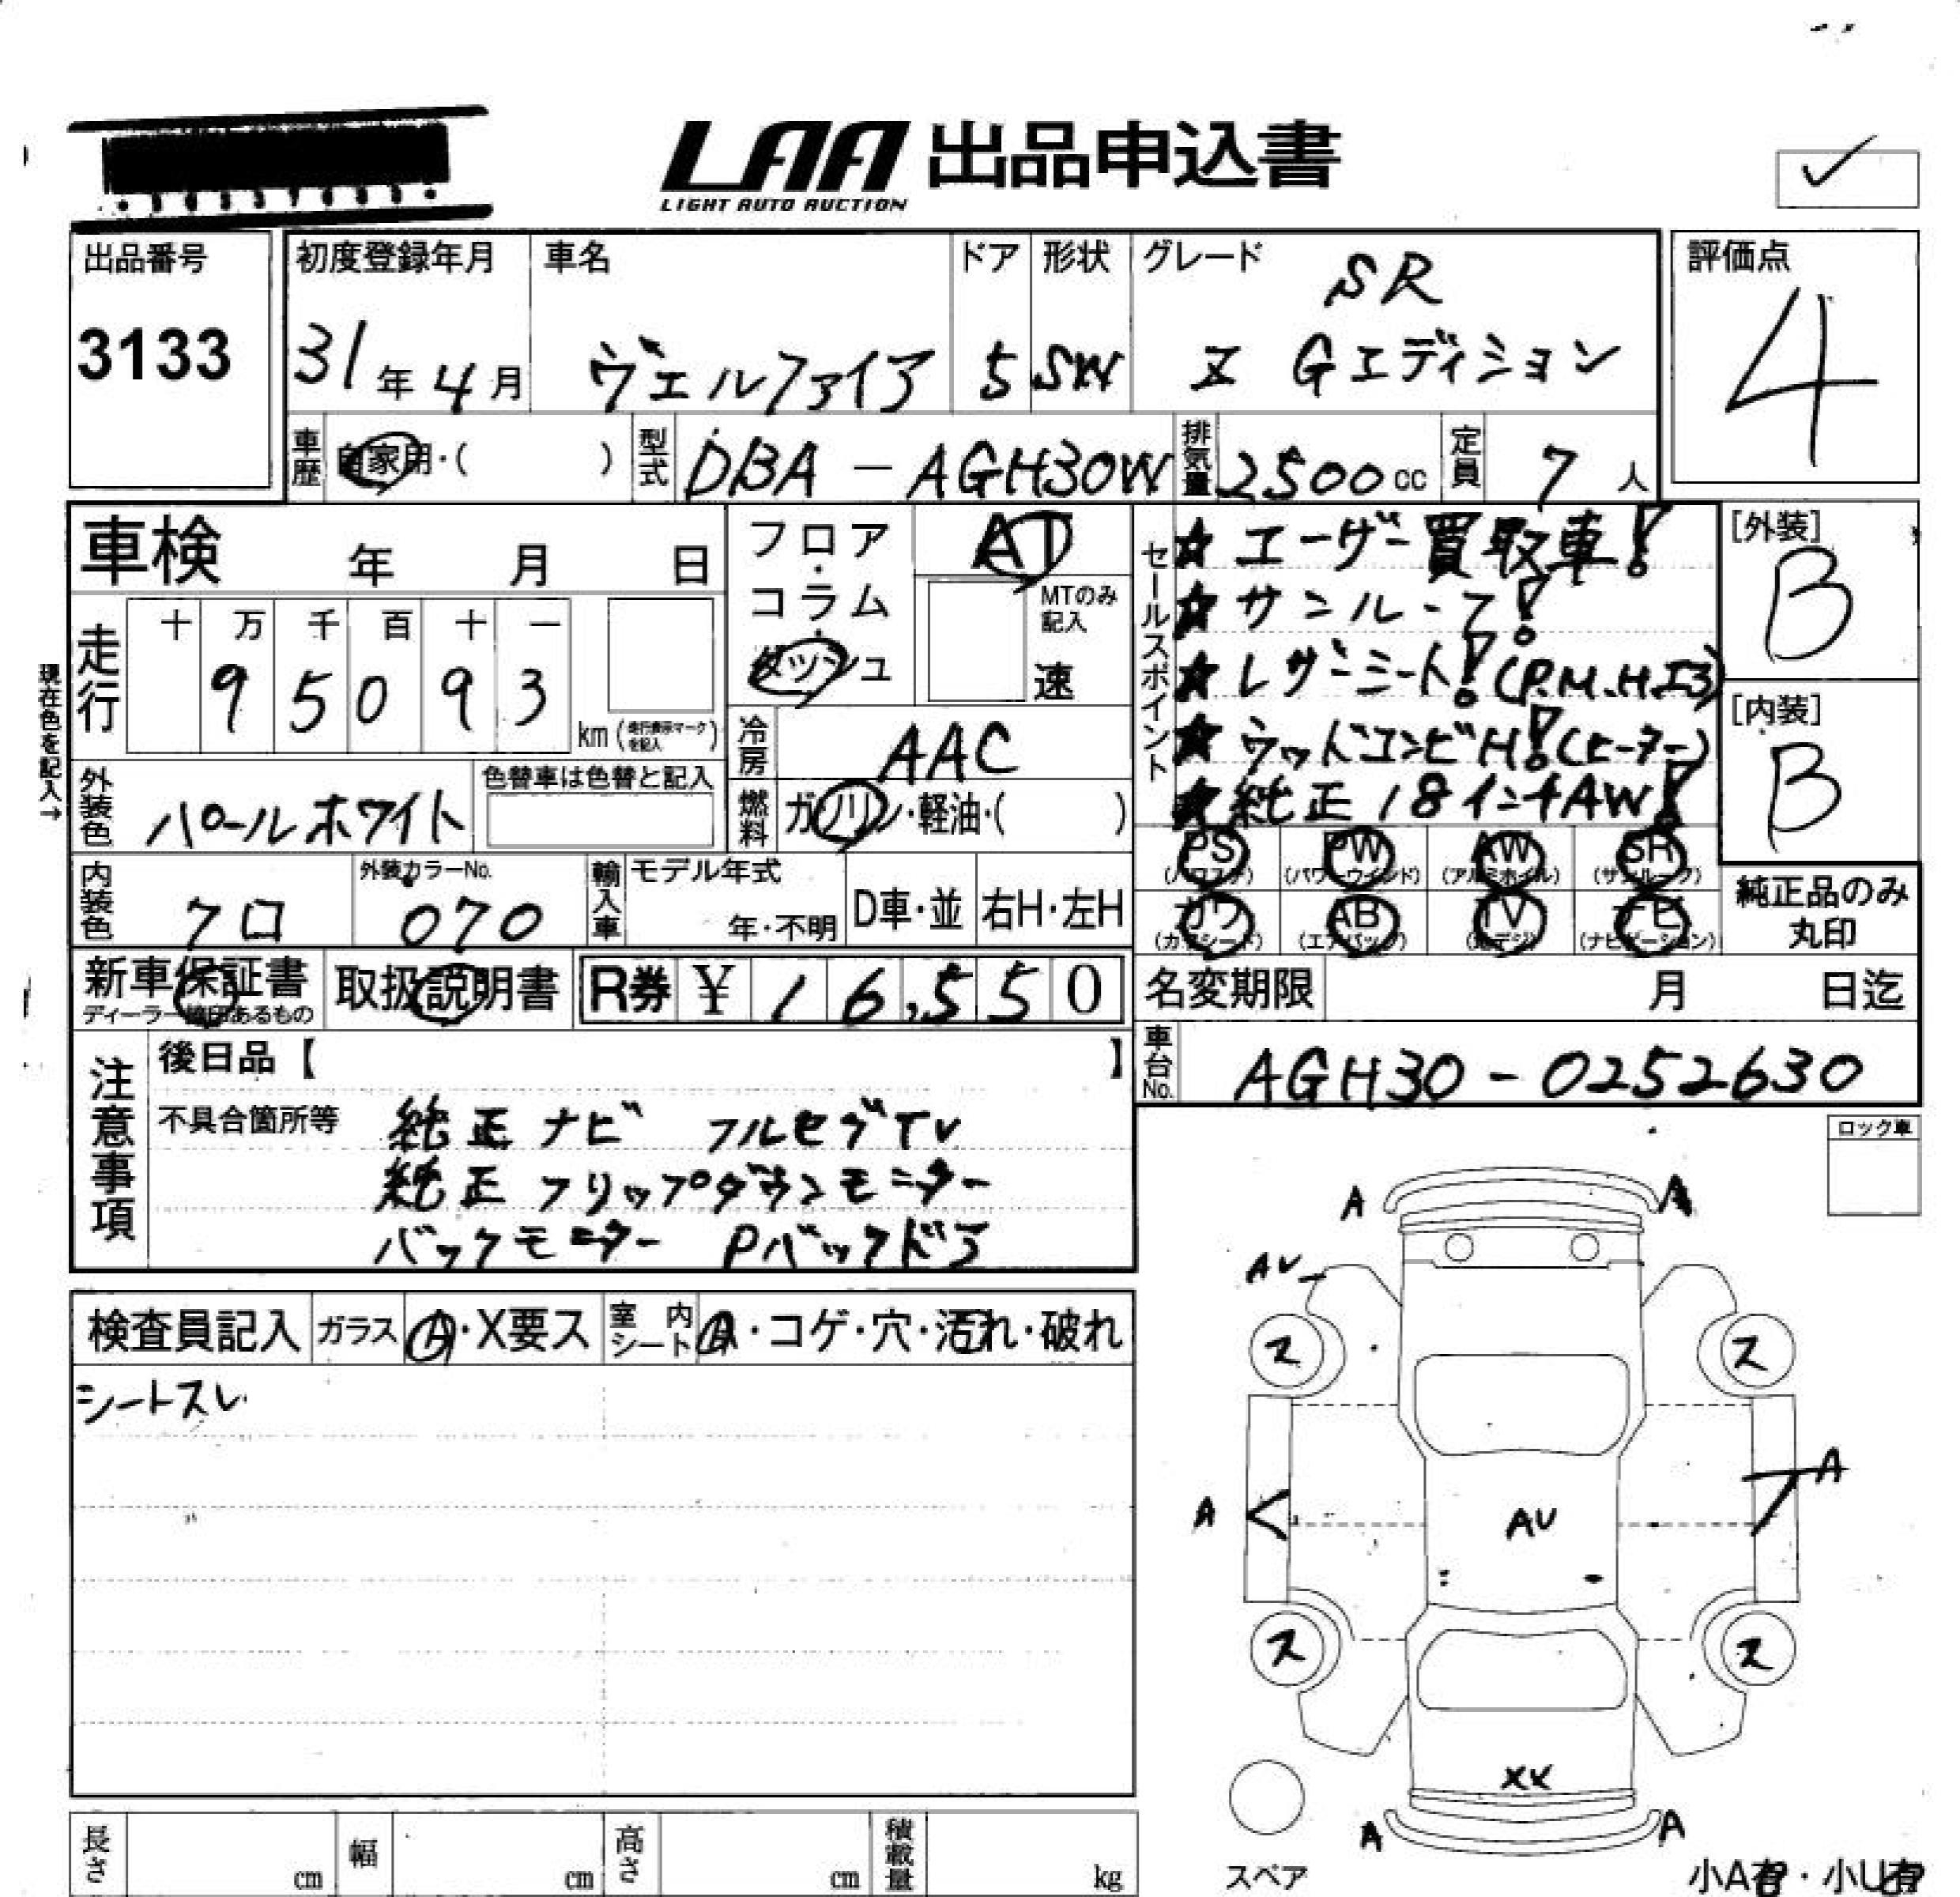 LAA 出品申込書
LIGHT AUTO AUCTION
出品番号
3133
初度登録年月
31年4月
車名
ヴェルファイア
ドア
5
形状
SW
グレード
SR
Z Gエディション
評価点
4
車歴
自家用・( )
型式
DBA-AGH30W
排気量
2500cc
定員
7人
車検 年 月 日
フロア・コラム・ダッシュ
AT
MTのみ記入
速
セールスポイント
☆ユーザー買取車!
☆サンルーフ!
☆レザーシート!(P.M.Hエ3)
☆ウッドコンビH!(ヒーター)
☆純正18インチAW!
[外装]
B
[内装]
B
現在色を記入→
走行
十 万 千 百 十 一
9 5 0 9 3
km(走行表示マークを記入)
冷房
AAC
外装色
パールホワイト
色替車は色替と記入
燃料
ガソリン・軽油・( )
PS (パワステ)
PW (パワーウインド)
AW (アルミホイル)
SR (サンルーフ)
カワ (カワシート)
AB (エアバック)
TV (地デジ)
ナビ (ナビゲーション)
純正品のみ丸印
内装色
クロ
外装カラーNo.
070
輸入車
モデル年式
年・不明
D車・並
右H・左H
新車保証書
ディーラー捺印あるもの
取扱説明書
R券 ¥ 16,550
名変期限 月 日迄
車台No.
AGH30-0252630
注意事項
後日品【 】
不具合箇所等
純正ナビ フルセグTV
純正フリップダウンモニター
バックモニター Pバックドア
ロック車
検査員記入
ガラス
A・X要ス
室内シート
A・コゲ・穴・汚れ・破れ
シートスレ
A A
AU
ス ス
A A
AU
ス ス
XK
A A
スペア
小A有・小U有
長さ cm
幅 cm
高さ cm
積載量 kg